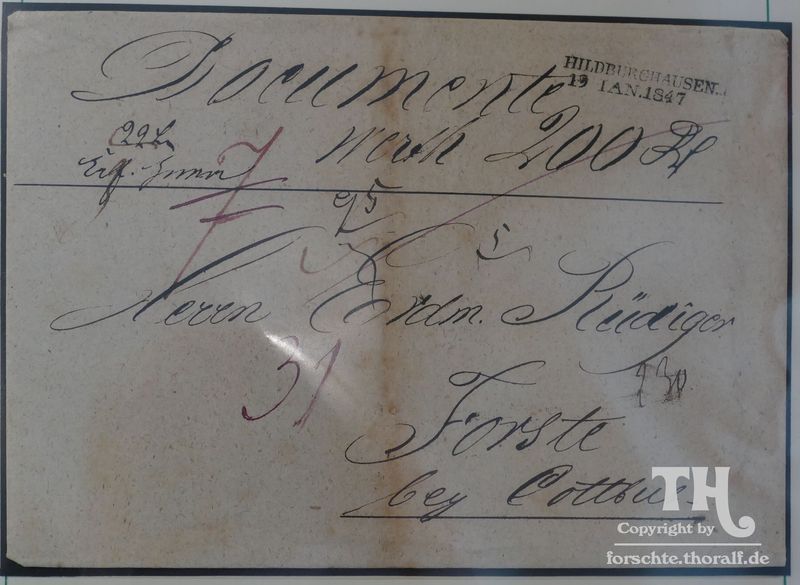 Documente
HILDBURGHAUSEN.
19 IAN.1847
werth 200
7
95
5
Herrn Erdm. Rüdiger
31
Forste
bey Cottbus
TH
Copyright by
forschte.thoralf.de